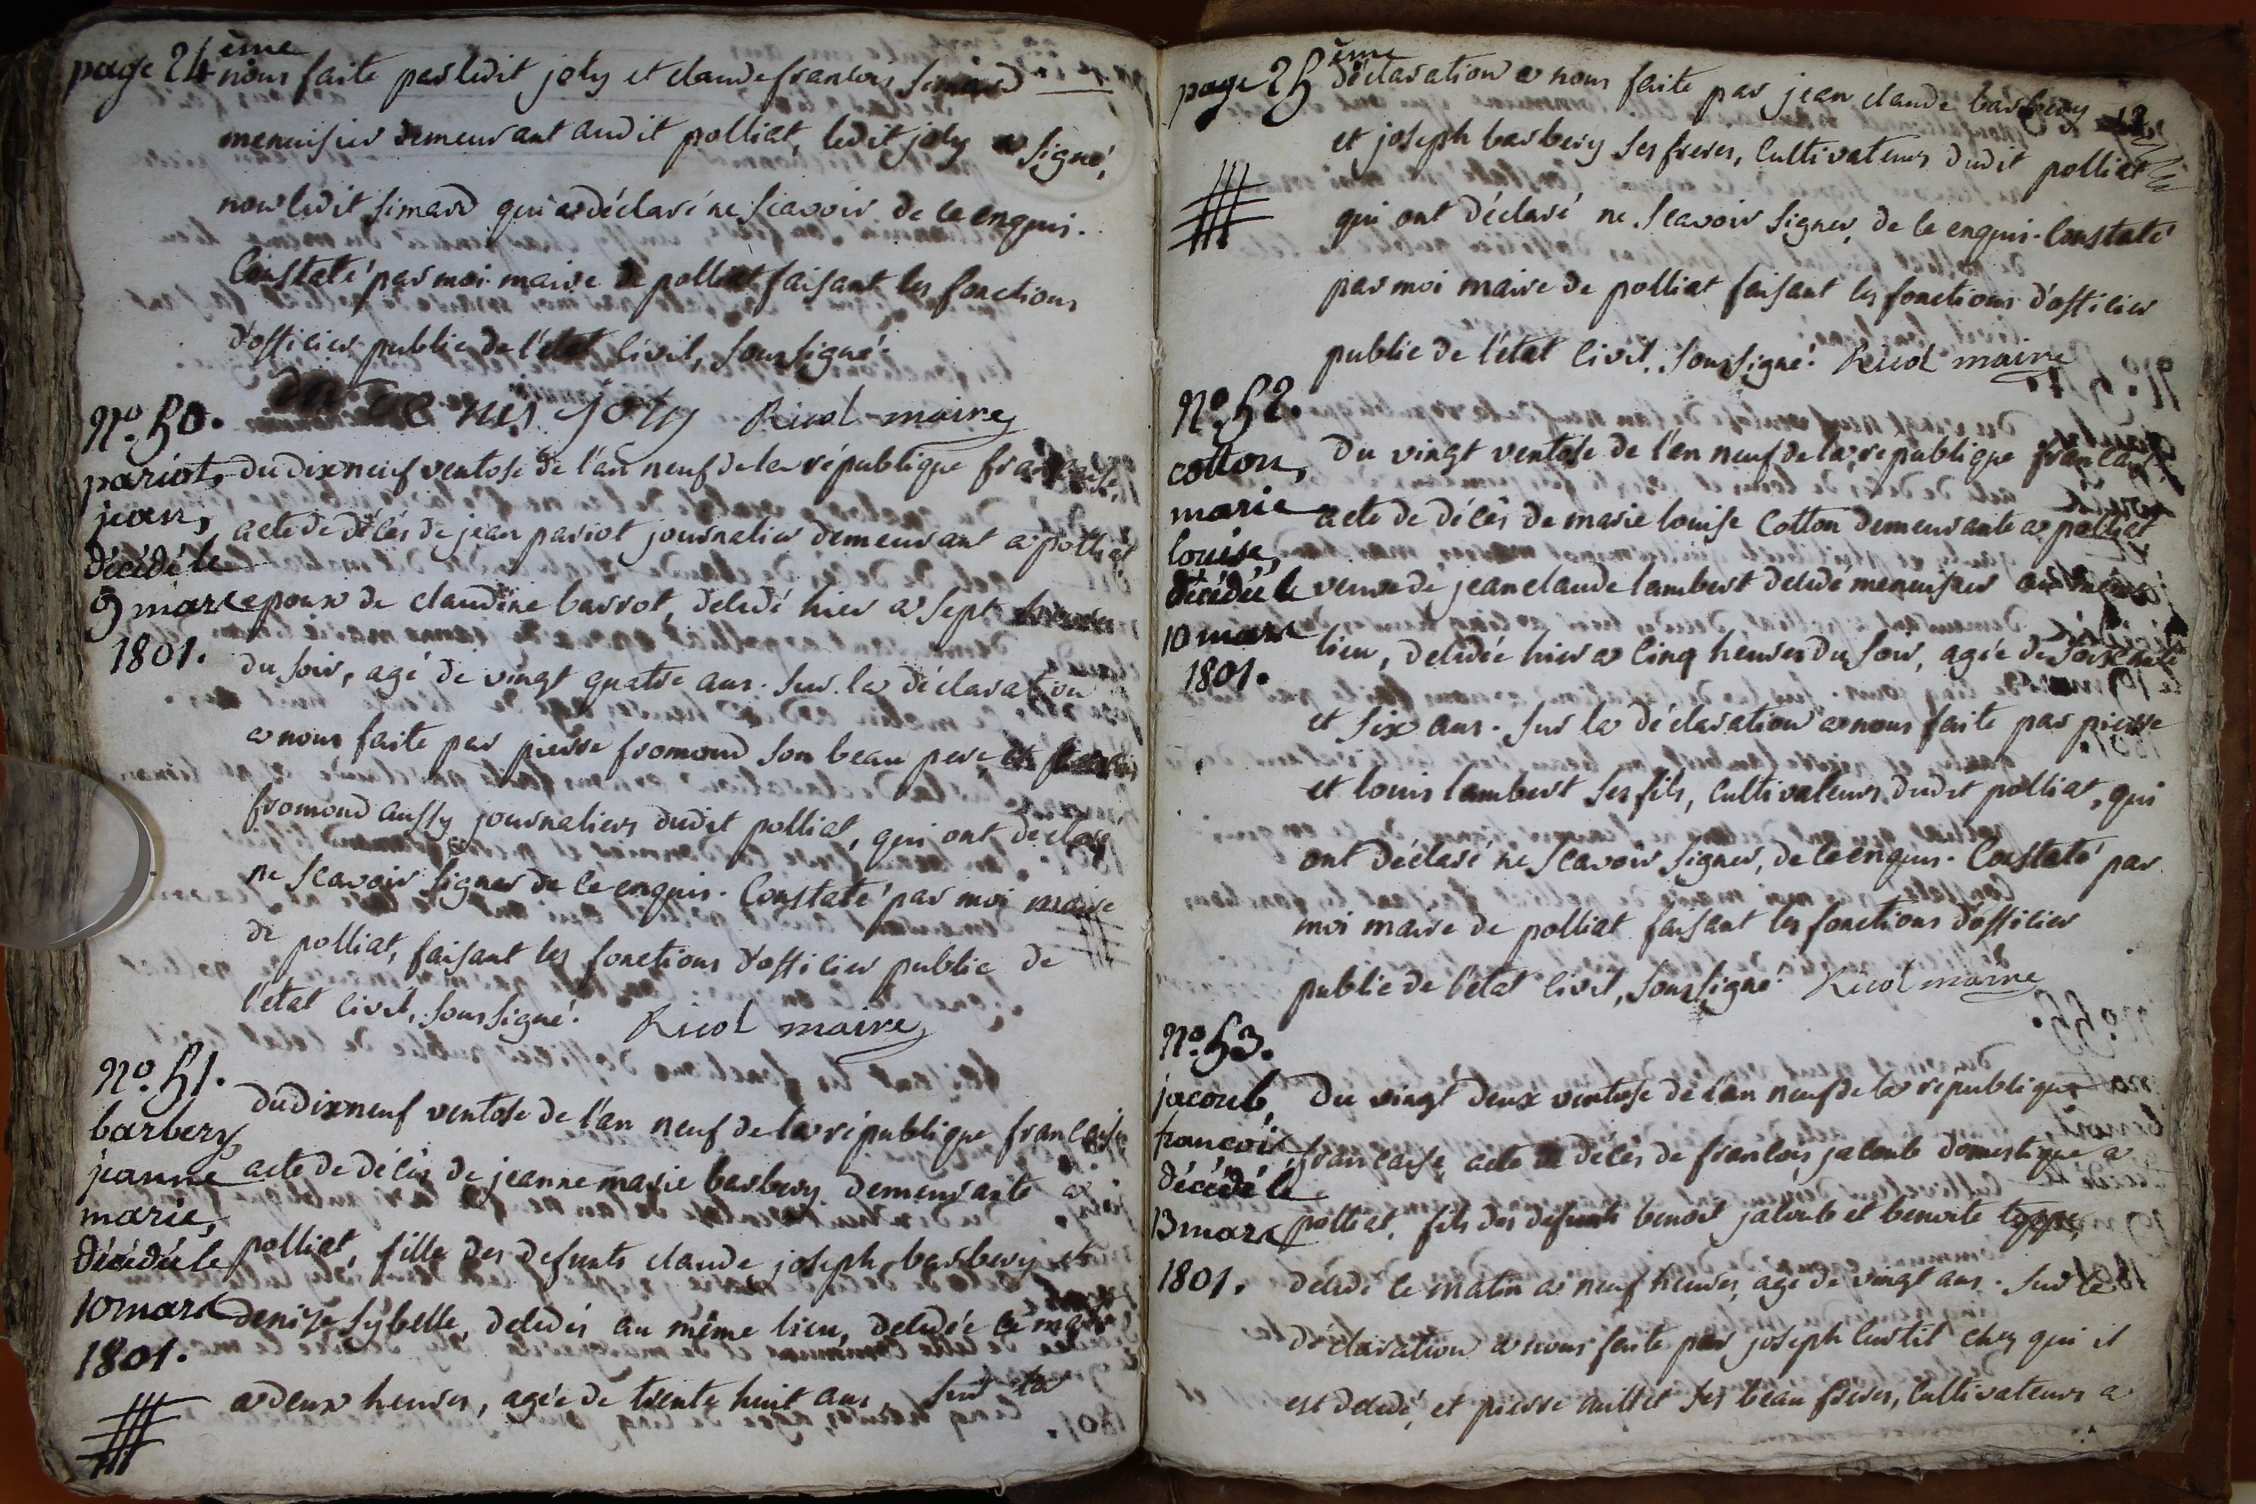 page 24
ème
nous faite par ledit joly et claude francois simard
menuisier demeurant audit polliat, ledit joly a signé,
non ledit simard qui a déclaré ne scavoir de ce enquis.
Constaté par moi maire de polliat faisant les fonctions
d'officier public de l'état civil, soussigné.
joly Ricol maire
N°. 50.
pariot,
jean,
décédé le
9 mars
1801.
du dix neuf ventose de l'an neuf de la république française,
acte de décès de jean pariot journalier demeurant a polliat
epoux de claudine barrot, décédé hier a sept heures
du soir, agé de vingt quatre ans. sur la déclaration
a nous faite par pierre fromond son beau pere et
fromond aussy journaliers dudit polliat, qui ont déclaré
ne scavoir signer de ce enquis. Constaté par moi maire
de polliat, faisant les fonctions d'officier public de
l'état civil, soussigné. Ricol maire
N°. 51.
barbery
jeanne
marie,
décédée le
10 mars
1801.
du dix neuf ventose de l'an neuf de la république française
acte de décès de jeanne marie barbery demeurante a
polliat, fille des defunts claude joseph barbery et
denise sybelle, décédés au même lieu, décédée ce matin
a deux heures, agée de trente huit ans, sur la
page 25
ème
déclaration a nous faite par jean claude barbery
et joseph barbery ses freres, cultivateurs dudit polliat
qui ont déclaré ne scavoir signer, de ce enquis. Constaté
par moi maire de polliat faisant les fonctions d'officier
public de l'état civil, soussigné. Ricol maire
N°. 52.
cotton,
marie
louise,
décédée le
10 mars
1801.
Du vingt ventose de l'an neuf de la republique française
acte de décès de marie louise Cotton demeurante a polliat
veuve de jean claude lambert décédé menuisier au même
lieu, décédée hier a cinq heures du soir, agée de soixante
et six ans. sur la déclaration a nous faite par pierre
et louis lambert ses fils, cultivateurs dudit polliat, qui
ont déclaré ne scavoir signer, de ce enquis. Constaté par
moi maire de polliat faisant les fonctions d'officier
public de l'état civil, soussigné. Ricol maire
N°. 53.
jacoub,
francois
décédé le
13 mars
1801.
Du vingt deux ventose de l'an neuf de la république
française, acte de décès de francois jacoub domestique a
polliat, fils des defunts benoit jacoub et benoite
décédé ce matin a neuf heures, agé de vingt ans. sur la
déclaration a nous faite par joseph curtil chez qui il
est décédé, et pierre ses beau freres, cultivateurs a